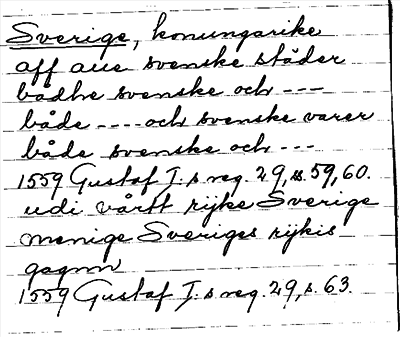 Sverige, konungarike
aff aue svenske städer
bådhe svenske och ---
både ---- och svenske varer
både svenske och ---
1559 Gustaf I.s reg. 29, s. 59, 60.
udi vårtt rijke Sverige
menige Sveriges rijkis
gagnn
1559 Gustaf I.s reg. 29, s. 63.